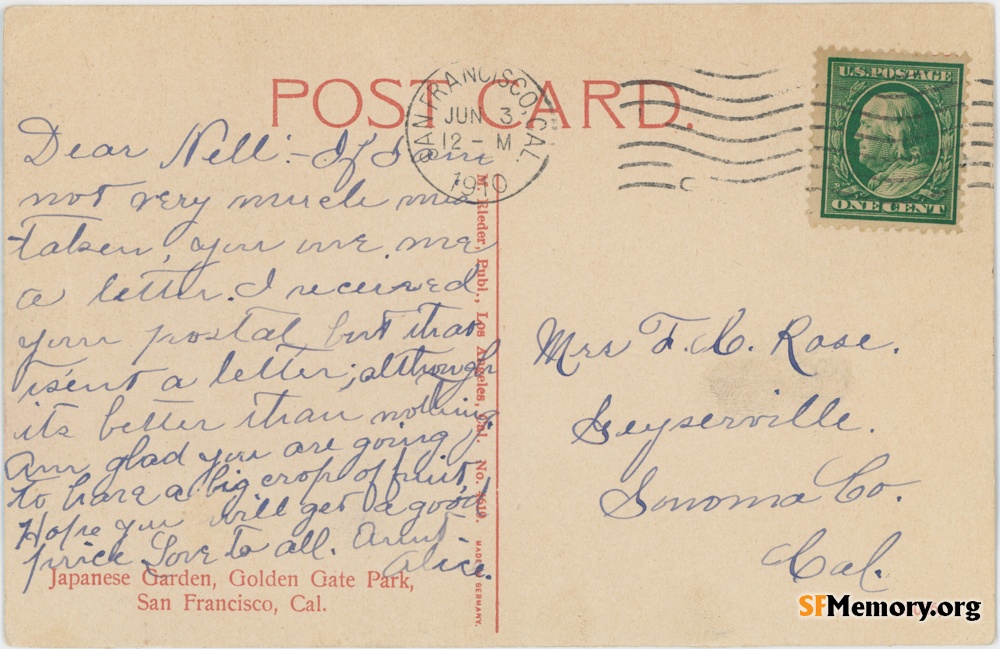 POST CARD.
SAN FRANCISCO, CAL.
JUN 3
12 - M
1910
U.S. POSTAGE
ONE CENT
Dear Nell:- If I am
not very much mis
taken, you owe me
a letter. I received
your postal but that
is'ent a letter; although
its better than nothing
Am glad you are going
to have a big crop of fruit,
Hope you will get a good
price. Love to all. Aunt
Alice.
Japanese Garden, Golden Gate Park,
San Francisco, Cal.
M. Rieder, Publ., Los Angeles, Cal. No.
MADE IN GERMANY.
Mrs F. C. Rose.
Geyserville.
Sonoma Co.
Cal.
SFMemory.org